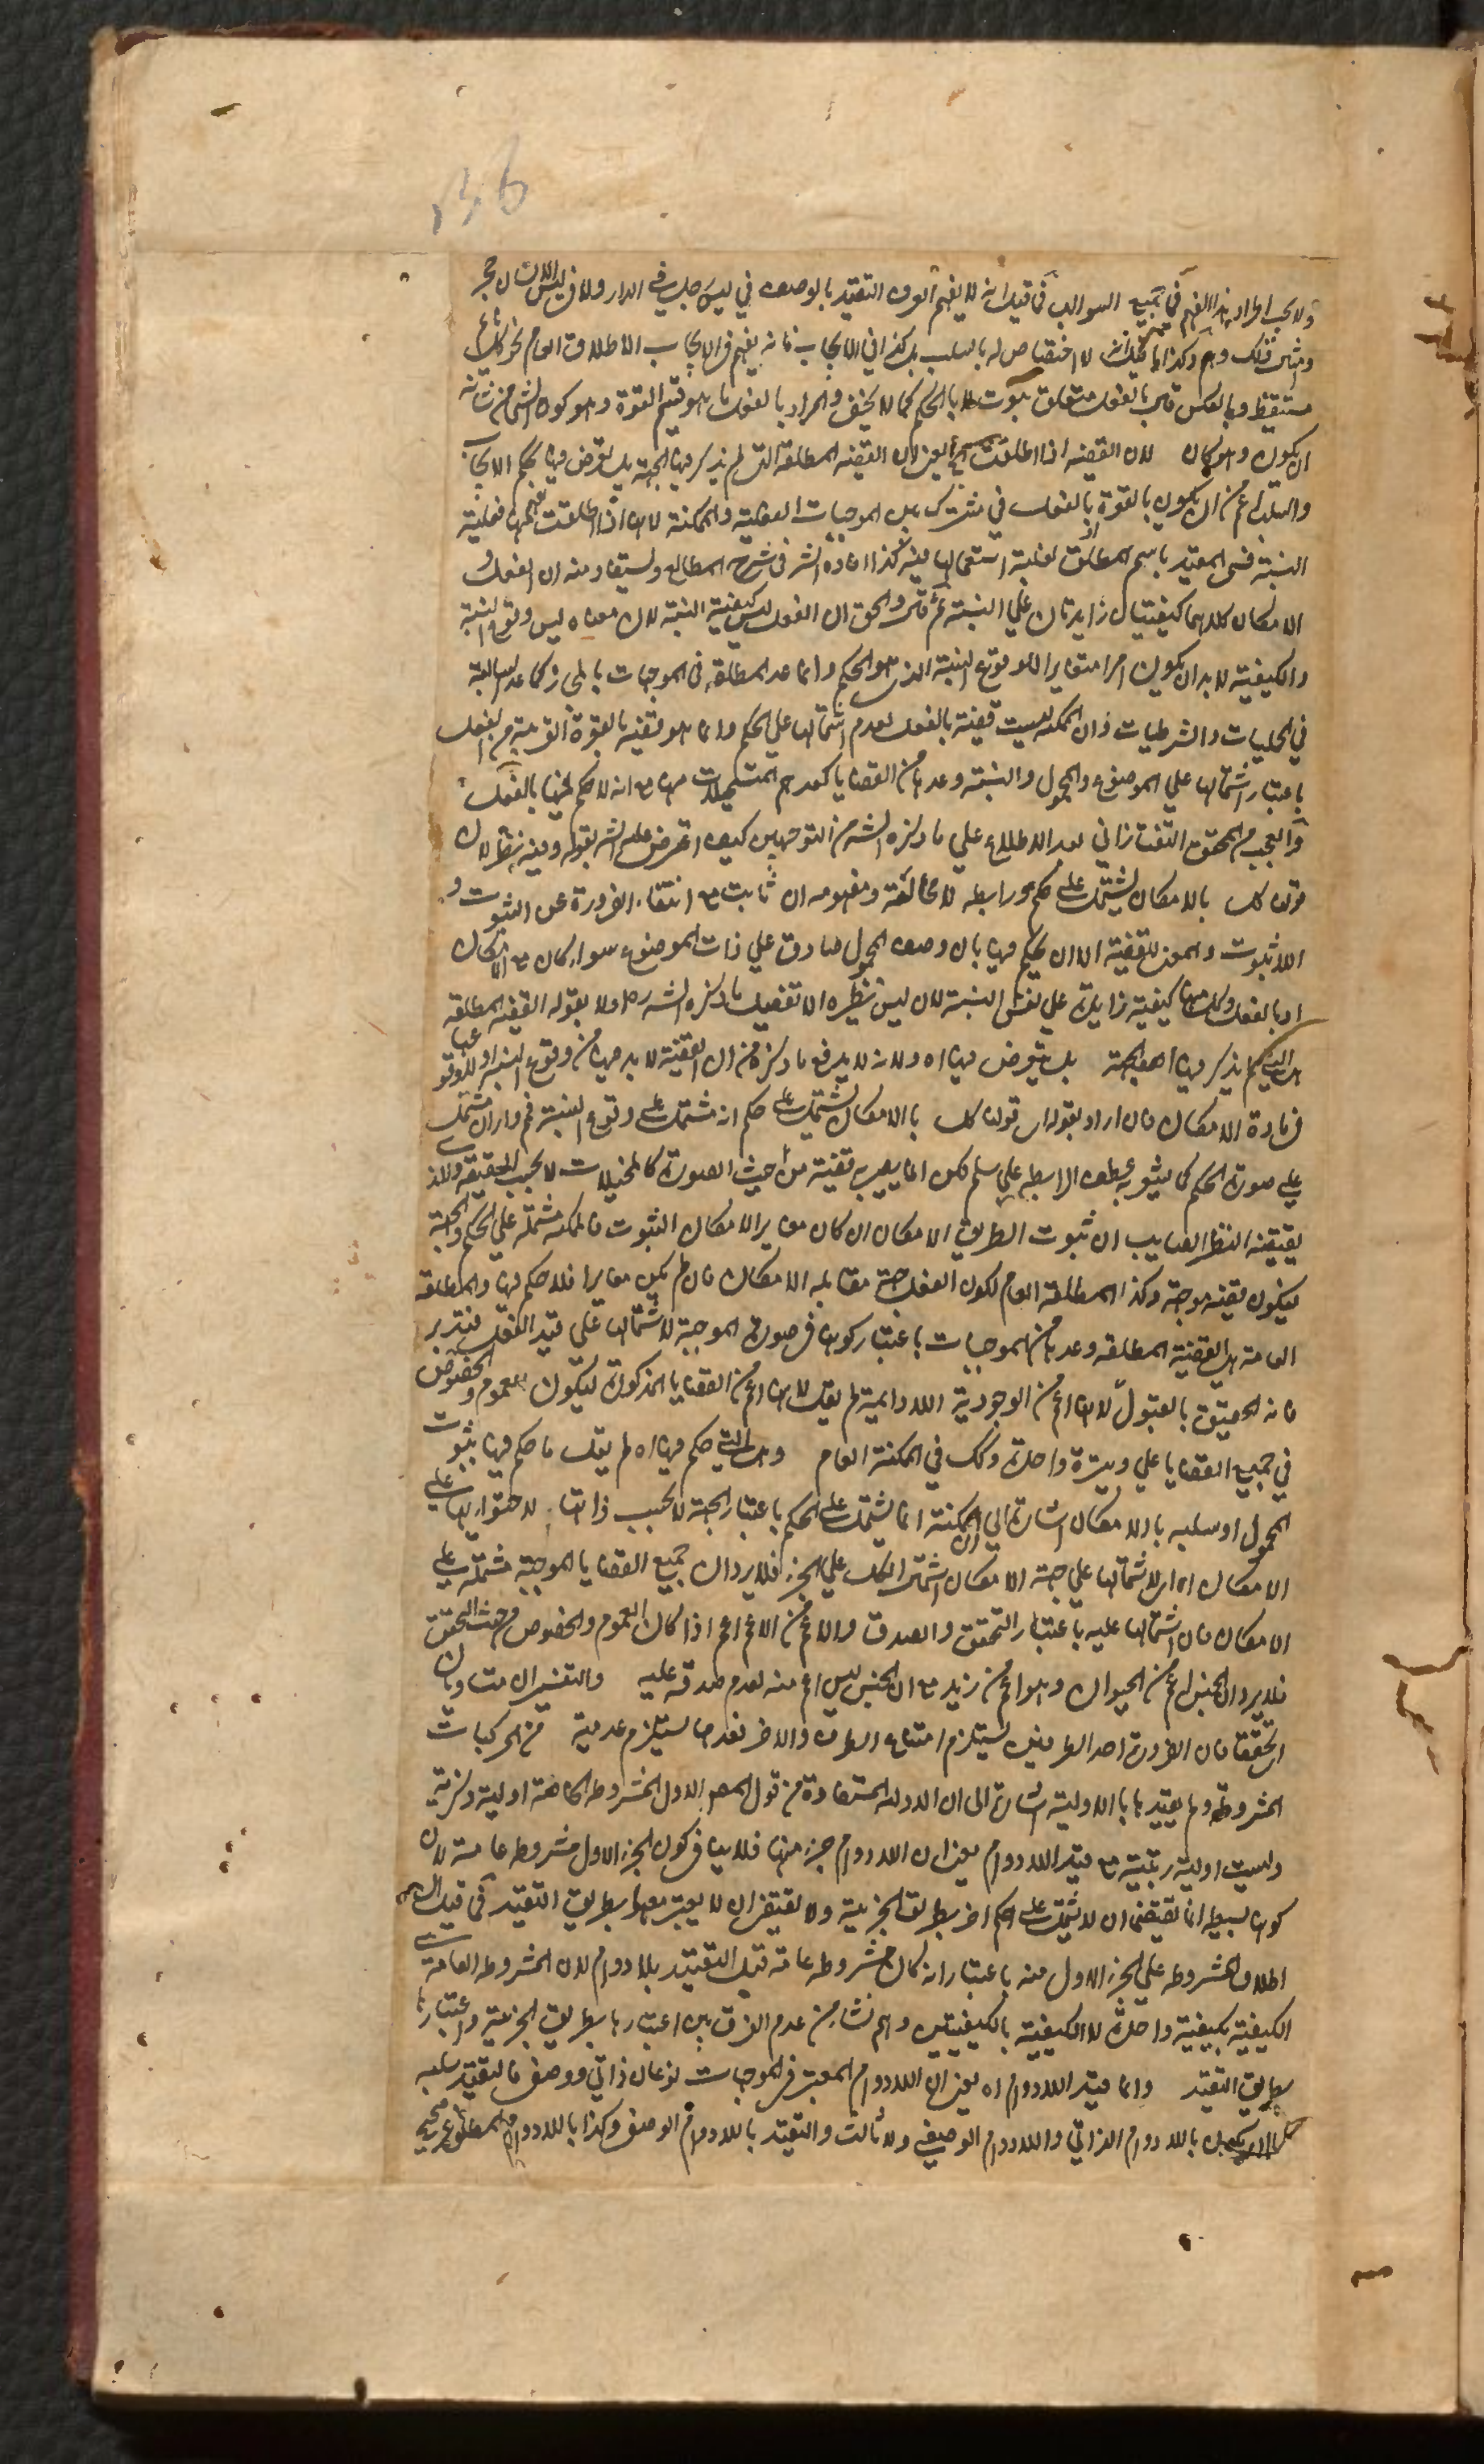 ولا يجب اطراد هذا الفهم في جميع السوالب فما قيل انه لا يفهم العرف التقييد بالوصف في ليس جالس في الدار ولا في ليس الانسان حجر
وشرب فلك وهم وكذا ما قيل انه لا اختصاص له بالسلب بل كذا في الايجاب فانه يفهم في الايجاب الاطلاق العام نحو كل نائم
مستيقظ وبالعكس قوله بالفعل متعلق بثبوت لا بالحكم كما لا يخفى والمراد بالفعل ما هو قسيم القوة وهو كون الشئ من شانه
ان يكون وهو كائن لان القضية اذا اطلقت يعني ان القضية المطلقة التي لم يذكر فيها الجهة بل يتعرض فيها بحكم الايجاب
والسلب اعم من ان يكون بالقوة او بالفعل فهي مشترك بين الموجهات الفعلية والممكنة لانها اذا اطلقت يفهم منها فعلية
النسبة فسمى المقيد باسم المطلق لغلبة استعمالها فيه كذا افاده الشر في شرح المطالع ويستفاد منه ان الفعل و
الامكان كلاهما كيفيتان زايدتان على النسبة ثم قال والحق ان الفعل ليس كيفية النسبة لان معناه ليس وقوع النسبة
والكيفية لا بد ان يكون امرا مغايرا لوقوع النسبة الذي هو الحكم وانما عد المطلقة في الموجهات بالمجاز كما عد السالبة
في الحمليات والشرطيات فان الممكنة ليست قضية بالفعل لعدم اشتمالها على الحكم وانما هو قضية بالقوة القريبة من الفعل
باعتبار اشتمالها على الموضوع والمحمول والنسبة وعدها من القضايا كعدهم المتخيلات منها مع انه لا حكم فيها بالفعل
والعجب من المحقق التفتازاني بعد الاطلاع على ما ذكره الشر من التوجهين كيف اعترض على الشر بقوله وفيه نظر لان
قولنا كل بالامكان يشتمل على حكم ورابطه لا محالة ومفهومه ان ثابت مع انتفاء الضرورة عن الثبوت و
اللاثبوت ولا معنى للقضية الا ان يحكم فيها بان وصف المحمول صادق على ذات الموضوع سواء كان مع الامكان
او بالفعل وكل منهما كيفية زايدة على نفس النسبة لان ليس نظيره الا تفصيل ما ذكره الشر اولا بقوله القضية المطلقة
هي التي لم يذكر فيها الجهة بل يتعرض فيها اه ولانه لا يدفع ما ذكره من ان القضية لا بد فيها من وقوع النسبة او لا وقوعها
في مادة الامكان فان اراد بقوله ان قولنا كل بالامكان يشتمل على حكم انه مشتمل على وقوع النسبة فم وان اراد انه مشتمل
على صورة الحكم كما يشعر به عطف الرابطه عليه مسلم لكن انما يصير به قضية من حيث الصورة كالمخيلات لا بحسب الحقيقة والذي
يقتضيه النظر الصايب ان ثبوت الطريق الامكان ان كان مغايرا لامكان الثبوت فالممكنة مشتملة على الحكم والجهة
فيكون قضية موجهة وكذا المطلقة العام لكون الفعل جهة مقابله الامكان فان لم يكن مغايرا فلا حكم فيها والمطلقة
العامة هي القضية المطلقة وعدها من الموجهات باعتبار كونها في صورة الموجهة لاشتمالها على قيد الفعل فتدبر
فانه الحقيق بالقبول لانها اعم من الوجودية اللادايمة لم يقل لانها اعم من القضايا المذكورة ليكون العموم والخصوص
في جميع القضايا على وتيرة واحدة وكذلك في الممكنة العام وهي التي حكم فيها اه لم يقل ما حكم فيها بثبوت
المحمول او سلبه بالامكان اشارة الى ان الممكنة انما يشتمل على الحكم باعتبار الجهة لا بحسب ذاتها لاحتوائها على
الامكان اه اي لاشتمالها على جهة الامكان اشتمال الكل على الجزء فلا يرد ان جميع القضايا الموجهة مشتملة على
الامكان فان اشتمالها عليه باعتبار التحقق والصدق والاعم من الاعم اعم اذا كان العموم والخصوص من حيث التحقق
فلا يرد ان الجنس اعم من الحيوان وهو اعم من زيد مع ان الجنس ليس اعم منه لعدم صدقه عليه والتفسيران متساويان
اي تحققا فان الضرورة احد الطرفين يستلزم امتناع الطرف والاخر فعدمها يستلزم عدمية من المركبات
المشروطة ولم يقيدها بالاولية اشارة الى ان الاولية المستفادة من قول المص الاول المشروطة الخاصة اولية ذكرية
وليست اولية رتبية مع قيد اللادوام يعني ان اللادوام جزء منها فلا ينافي كون الجزء الاول مشروطه عامة لان
كونها بسيطه انما يقتضي ان لا يشتمل على حكم اخر بطريق الجزئية ولا يقتضي ان لا يعتبر معها بطريق التقييد فما قيل ان
اطلاق المشروطه على الجزء الاول منه باعتبار انه كان مشروطه عامة قبل التقييد بلا دوام لان المشروطه العامة هي
الكيفية بكيفية واحدة لا الكيفية بالكيفيتين وهم نشا من عدم الفرق بين اعتبارها بطريق الجزئية واعتبارها
بطريق التقييد وانما قيد اللادوام اه يعني ان اللادوام المعتبر في الموجهات نوعان ذاتي ووصفي فالتقييد سلبه
باللادوام الذاتي واللادوام الوصفي ولا ثالث والتقييد باللادوام الوصفي وكذا باللادوام المطلق غير صحيح